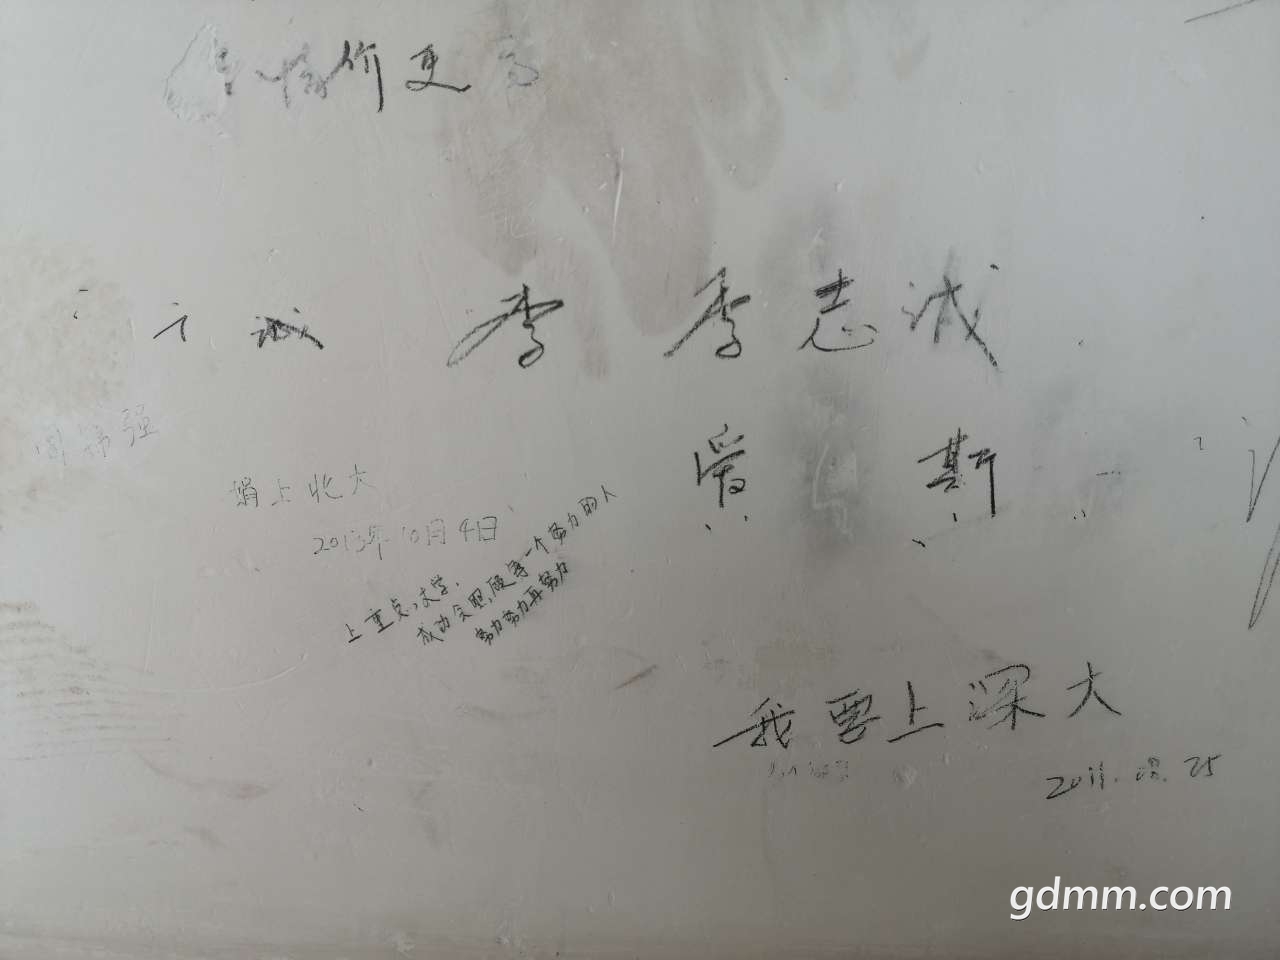 价更高
诚 李 李志诚
强
爱 斯
上北大
2013年10月4日
上重点,文学,
成功会照顾每一个努力的人
努力努力再努力
我要上深大
2011.08.25
gdmm.com